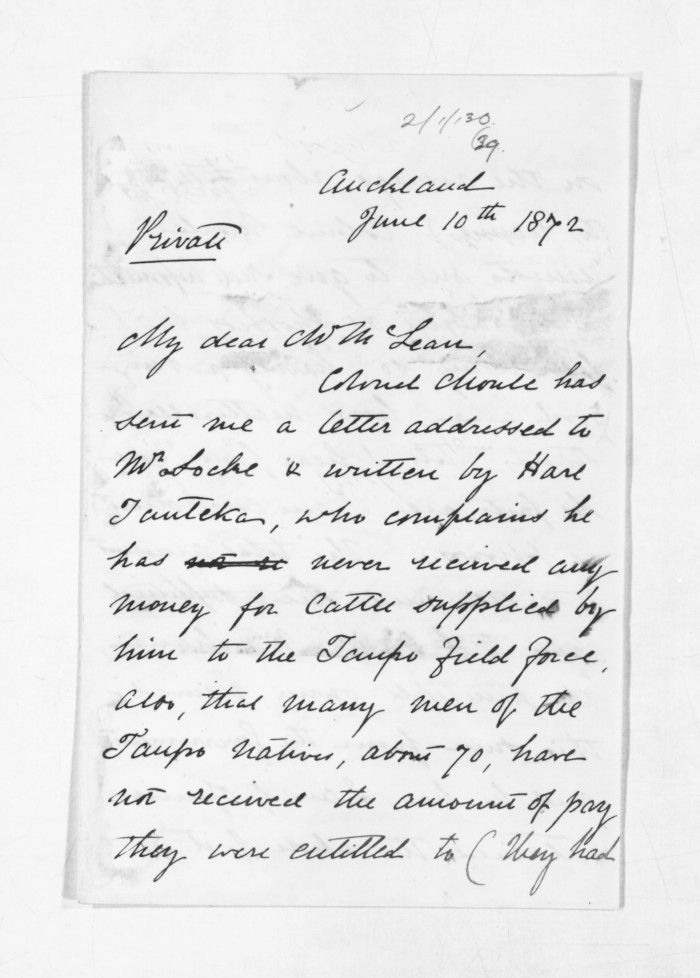 2/1/130
39.
Auckland
June 10th 1872
Private
My dear Mr McLean,
Colonel Moule has
sent me a letter addressed to
Mr Locke & written by Hare
Tauteka, who complains he
has not re never received any
money for Cattle supplied by
him to the Taupo Field Force,
also, that many men of the
Taupo Natives, about 70, have
not received the amount of pay
they were entitled to (They had